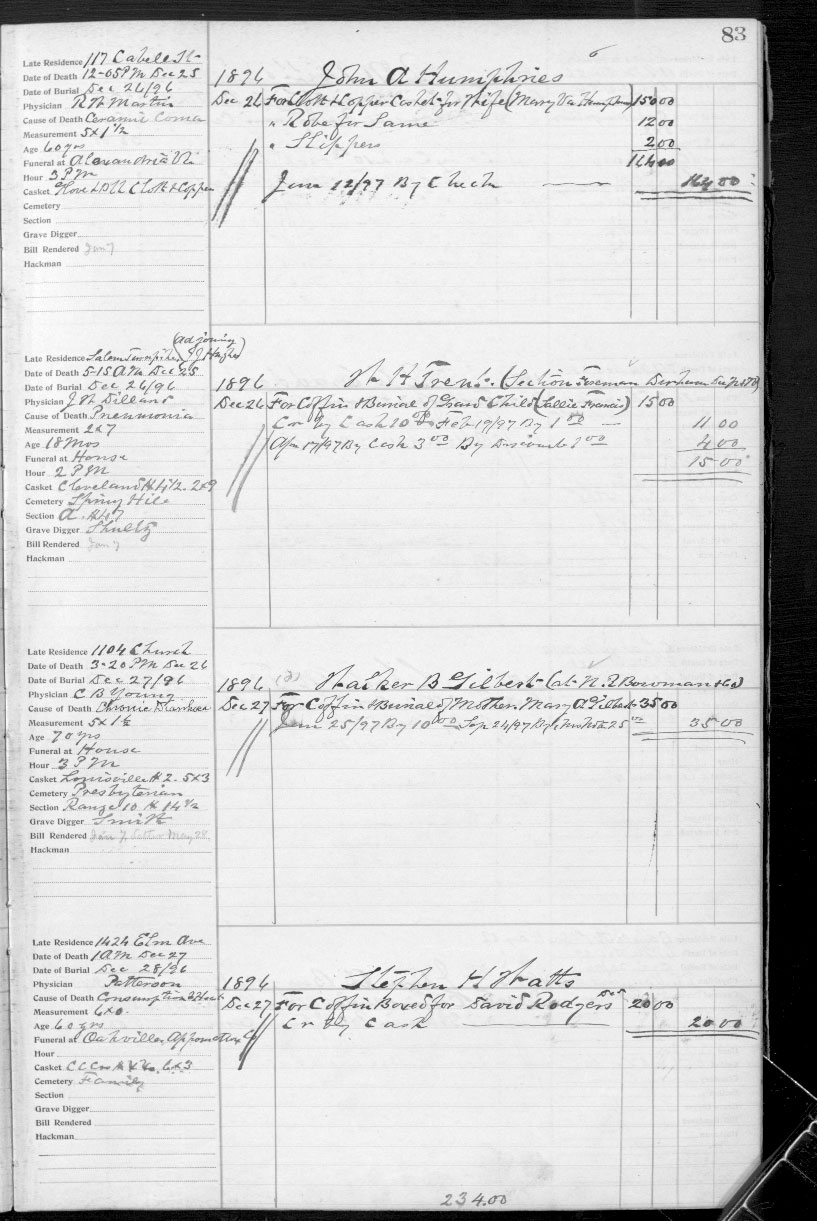 83
Late Residence 117 Cabell St
Date of Death 12-05 PM Dec 25
Date of Burial Dec 26/96
Physician R W Martin
Cause of Death Ceramic Coma
Measurement 5x1 1/2
Age 60 yrs
Funeral at Alexandria Va
Hour 3 PM
Casket Cloth & Copper
Cemetery
Section
Grave Digger
Bill Rendered Jan 7
Hackman
1896 John A Humphries
Dec 26 For Cloth & Copper Casket for Wife (Marry Va Humphries) 150 00
" Robe for Same 12 00
" Slippers 2 00
164 00
Jan 12/97 By Check 164 00
Late Residence Salem Turnpike (adjoining Hughes)
Date of Death 5-15 AM Dec 25
Date of Burial Dec 26/96
Physician J W Dillard
Cause of Death Pneumonia
Measurement 2x7
Age 18 Mos
Funeral at House
Hour 2 PM
Casket Cleveland # 412. 2x9
Cemetery Spring Hill
Section A.
Grave Digger Shultz
Bill Rendered Jan 7
Hackman
1896 W H Trent. (Section Foreman Durham Div N&W)
Dec 26 For Coffin & Burial of Grand Child (Callie Francis) 15 00
Cr by Cash 10 00 Feb 17/97 By 1 00 11 00
Apr 17/97 By Cash 3 00 By Discount 1 00 4 00
15 00
Late Residence 1104 Church
Date of Death 3-20 PM Dec 26
Date of Burial Dec 27/96
Physician C B Young
Cause of Death Chronic Diarrhoea
Measurement 5x1 1/2
Age 70 yrs
Funeral at House
Hour 3 PM
Casket Louisville # 2. 5x3
Cemetery Presbyterian
Section Range 10 # 14 1/2
Grave Digger Smith
Bill Rendered Jan 7. Letter May 28
Hackman
1896 Walker B Gilbert (at N. Bowman & Co)
Dec 27 For Coffin & Burial of Mother, Mary A Gilbert 35 00
Jan 25/97 By 10 00 Sep 24/97 By 25 00 35 00
Late Residence 1424 Elm Ave
Date of Death 1 AM Dec 27
Date of Burial Dec 28/96
Physician Patterson
Cause of Death Consumption
Measurement 6x0
Age 60 yrs
Funeral at Oakville, Appomattox Co
Hour
Casket 6x3
Cemetery Family
Section
Grave Digger
Bill Rendered
Hackman
1896 Stephen H Watts
Dec 27 For Coffin Boxed for David Rodgers Decd 20 00
Cr by Cash 20 00
234.00